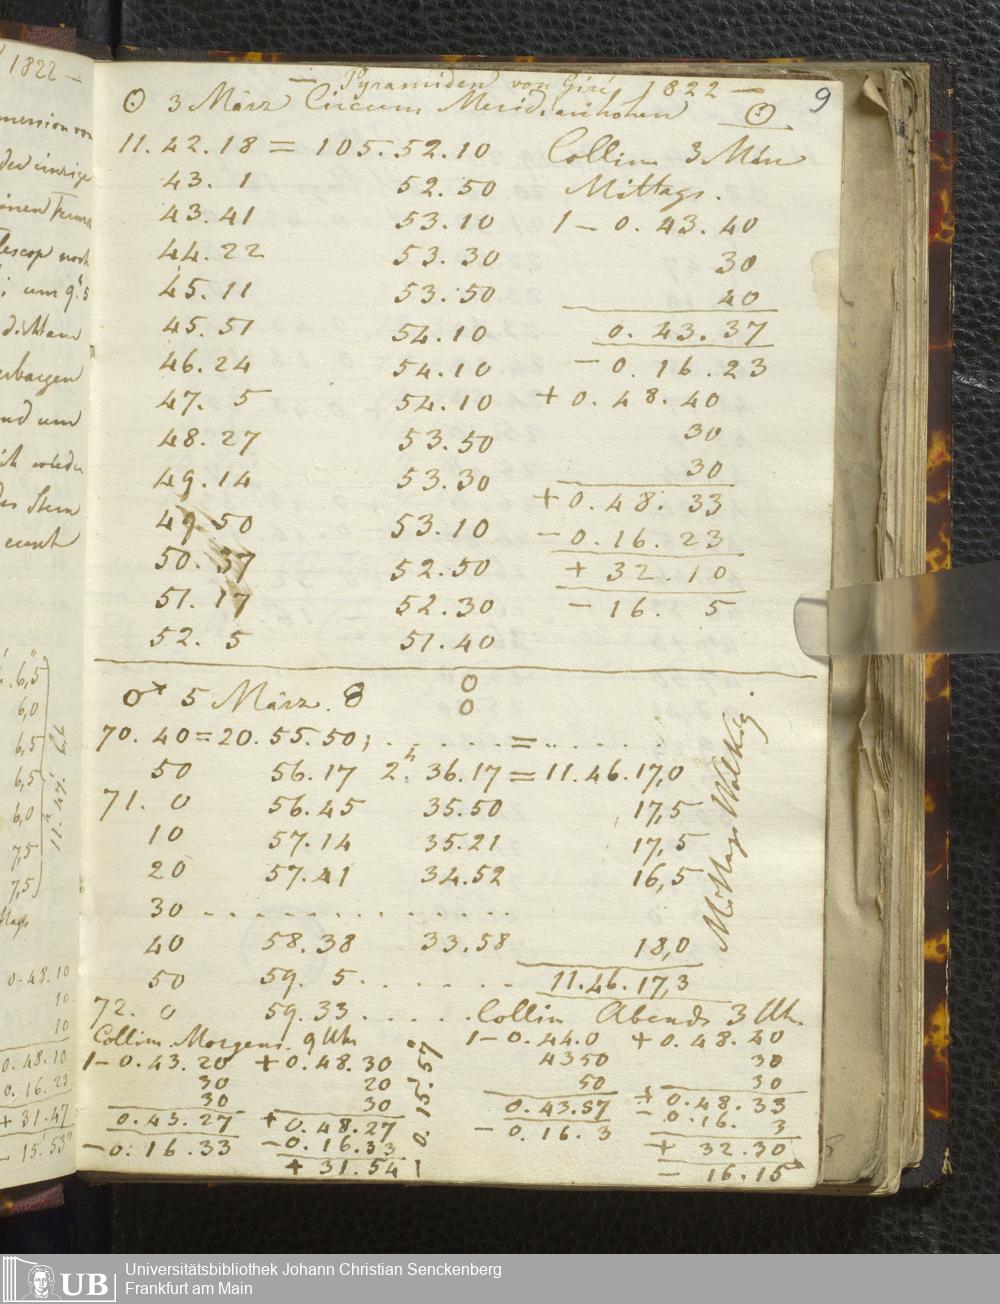 1822 —
— Pyramiden von Gizé 1822 —
9
☉ 3 März Circum Meridianhöhen ☉
11.42.18 = 105.52.10 Collim. 3 März
43. 1 52.50 Mittags.
43.41 53.10 1 – 0.43.40
44.22 53.30 30
45.11 53.50 40
45.51 54.10 0.43.37
46.24 54.10 – 0.16.23
47. 5 54.10 + 0.48.40
48.27 53.50 30
49.14 53.30 30
49.50 53.10 + 0.48.33
50.37 52.50 – 0.16.23
51.17 52.30 + 32.10
52. 5 51.40 – 16. 5
♂ 5 März.
70.40 = 20.55.50; . . . . . . = . . . .
50 56.17 2h.36.17 = 11.46.17,0
71. 0 56.45 35.50 17,5
10 57.14 35.21 17,5
20 57.41 34.52 16,5
30 . . . . . . . . . . . .
40 58.38 33.58 18,0
50 59. 5 . . . . . . 11.46.17,3
72. 0 59.33 . . . . . Collim Abends 3 Uh.
Mittags Wolkig
Collim. Morgens. 9 Uh.
1 – 0.43.20 + 0.48.30
30 20
30 30
0.43.27 + 0.48.27
– 0.16.33 – 0.16.33
+ 31.54
0.15.57
1 – 0.44.0 + 0.48.40
4350 30
50 30
0.43.57 + 0.48.33
– 0.16.3 – 0.16. 3
+ 32.30
– 16.15
6,5
6,0
6,5
6,5
6,0
7,5
7,5
0.48.10
10
10
0.48.10
0.16.23
+ 31.47
– 15.53"
UB
Universitätsbibliothek Johann Christian Senckenberg
Frankfurt am Main